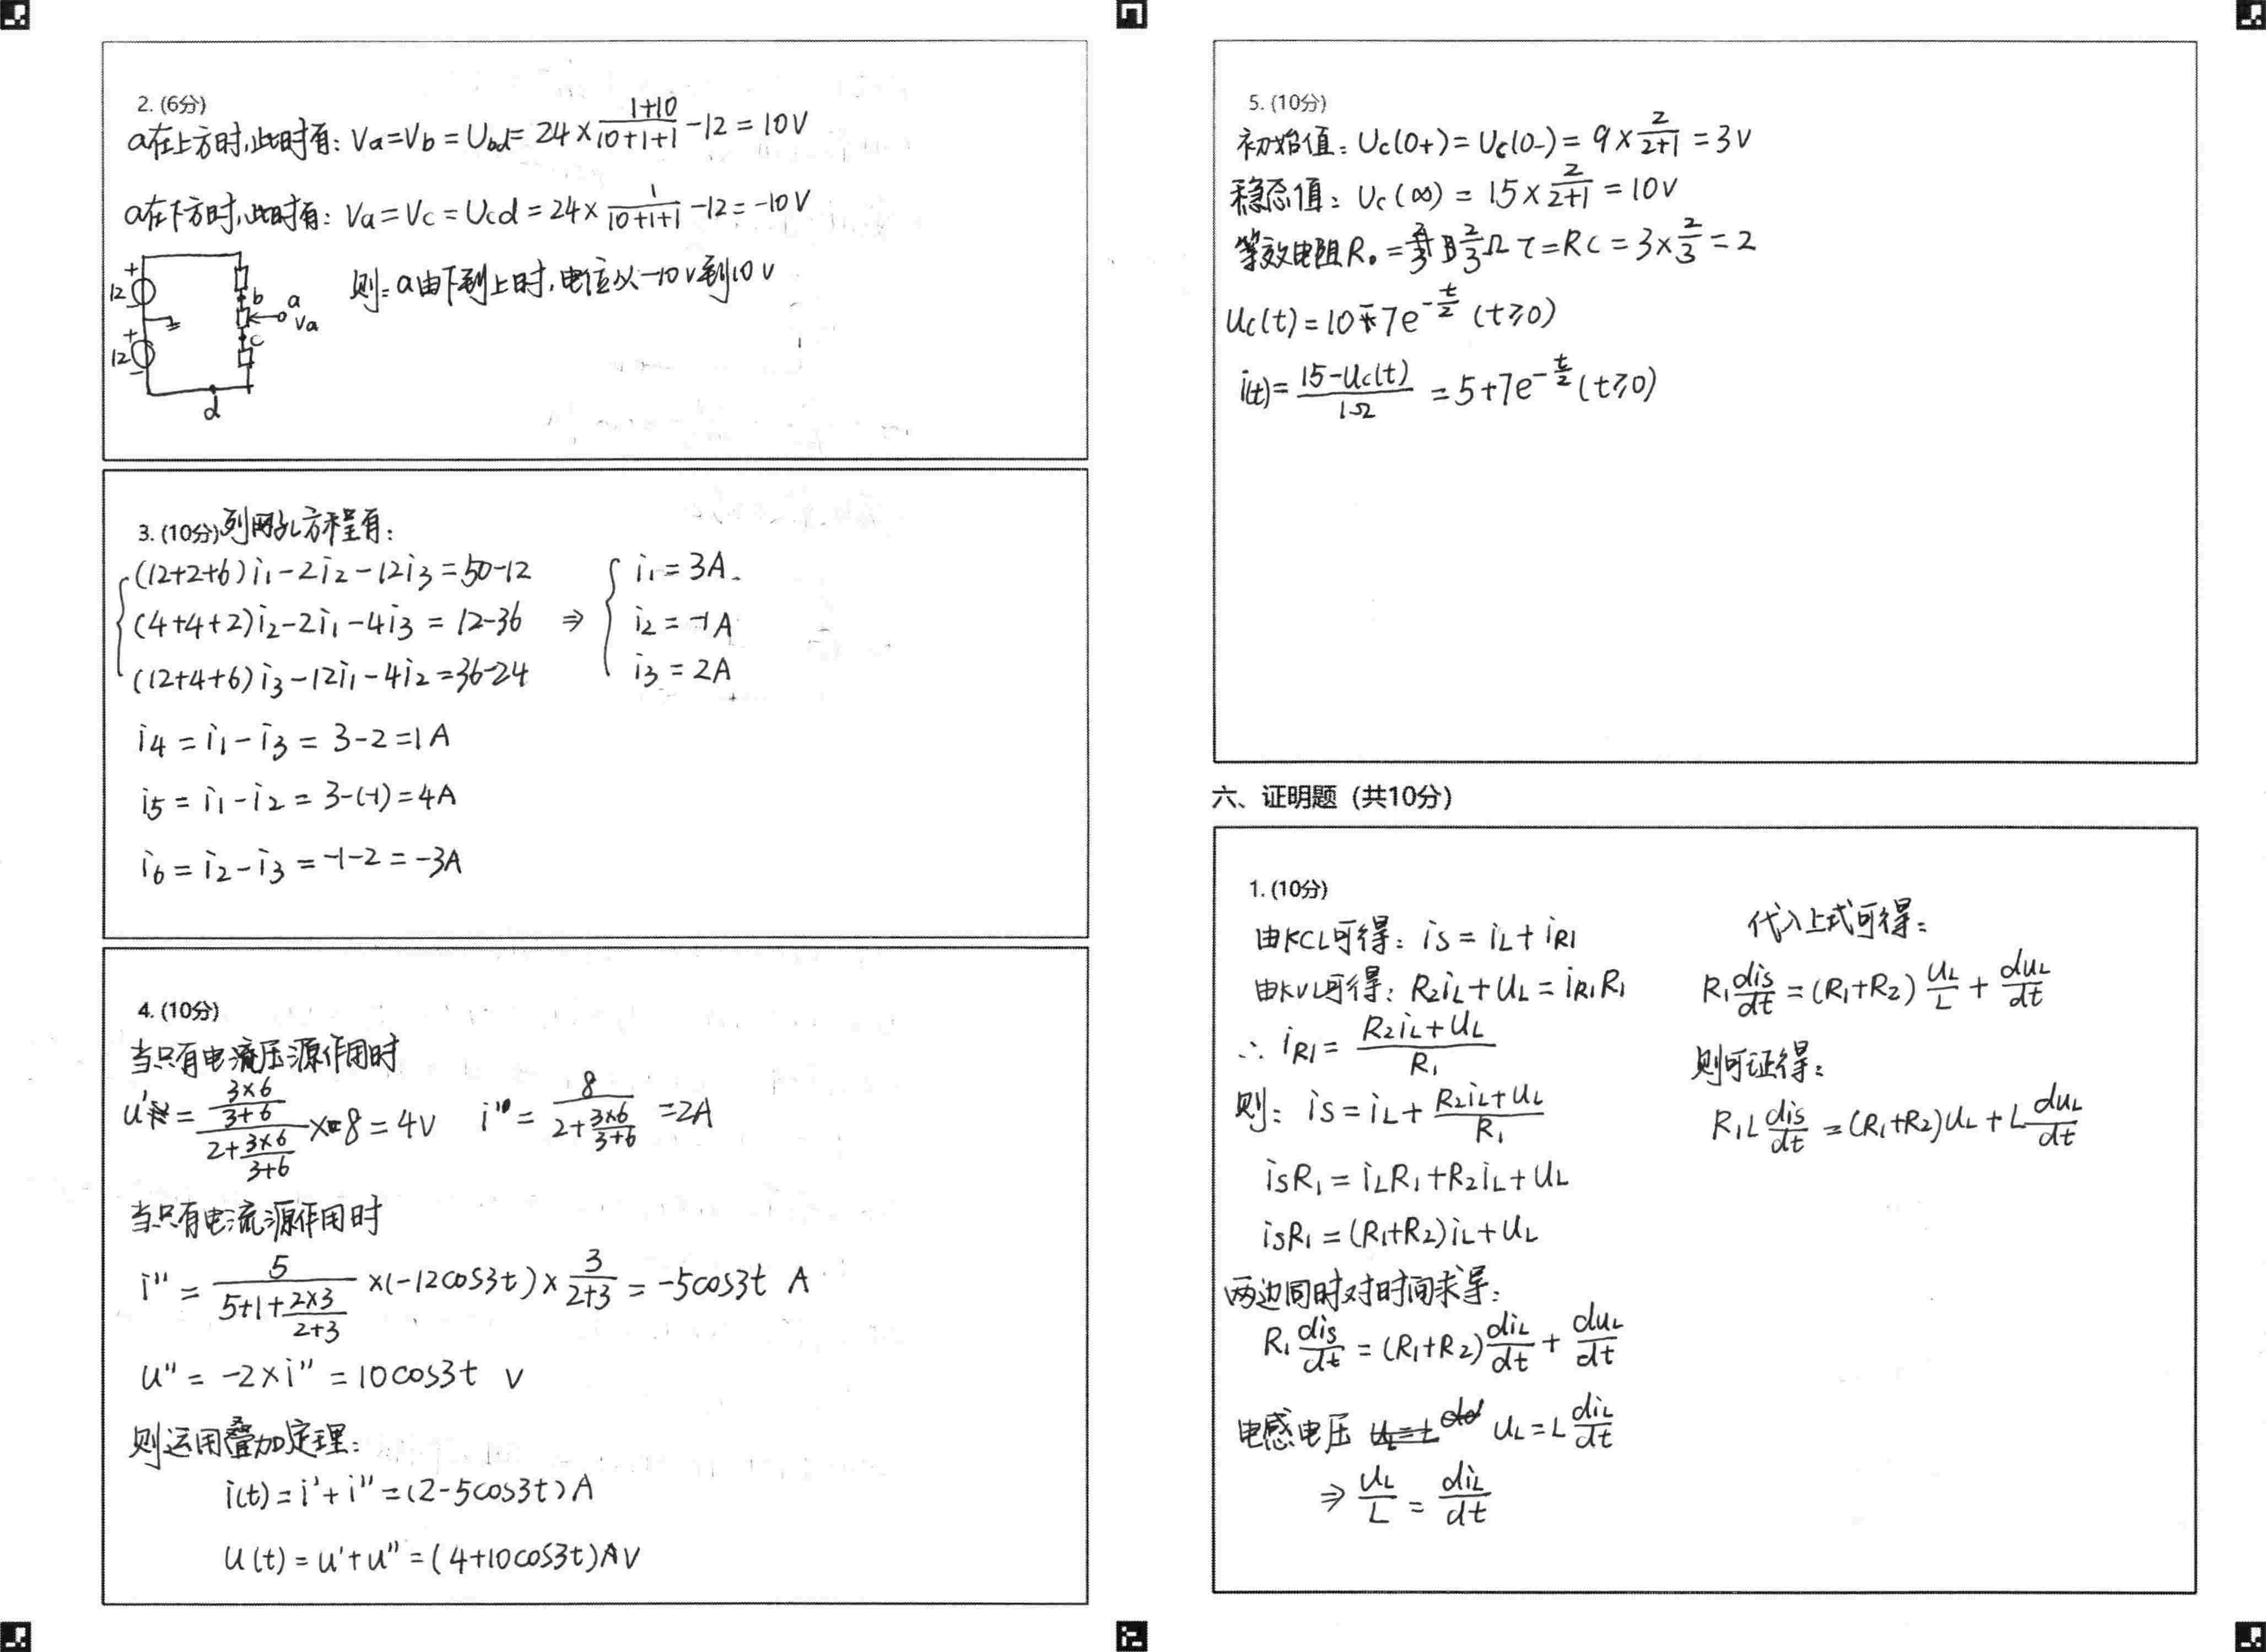 2. (6分)
a在上方时,此时有: Va=Vb=Ubd=24×(1+10)/(10+1+1)-12=10V
a在下方时,此时有: Va=Vc=Ucd=24×1/(10+1+1)-12=-10V
则:a由下到上时,电位从-10V到10V
+
12
-
+
12
-
b
a
Va
c
d
3. (10分)列网孔方程有:
(12+2+6)i₁-2i₂-12i₃=50-12
(4+4+2)i₂-2i₁-4i₃=12-36
(12+4+6)i₃-12i₁-4i₂=36-24
⇒
i₁=3A
i₂=-1A
i₃=2A
i₄=i₁-i₃=3-2=1A
i₅=i₁-i₂=3-(-1)=4A
i₆=i₂-i₃=-1-2=-3A
4. (10分)
当只有电压源作用时
u'=((3×6)/(3+6))/(2+(3×6)/(3+6))×8=4V i'=8/(2+(3×6)/(3+6))=2A
当只有电流源作用时
i''=5/(5+1+(2×3)/(2+3))×(-12cos3t)×3/(2+3)=-5cos3t A
u''=-2×i''=10cos3t V
则运用叠加定理:
i(t)=i'+i''=(2-5cos3t)A
u(t)=u'+u''=(4+10cos3t)V
5. (10分)
初始值: Uc(0+)=Uc(0-)=9×2/(2+1)=3V
稳态值: Uc(∞)=15×2/(2+1)=10V
等效电阻R₀=2/3Ω τ=RC=3×2/3=2
Uc(t)=10-7e^(-t/2) (t≥0)
i(t)=(15-Uc(t))/1Ω=5+7e^(-t/2) (t≥0)
六、证明题(共10分)
1. (10分)
由KCL可得: is=iL+iR1
由KVL可得: R₂iL+UL=iR1R₁
∴ iR1=(R₂iL+UL)/R₁
则: is=iL+(R₂iL+UL)/R₁
isR₁=iLR₁+R₂iL+UL
isR₁=(R₁+R₂)iL+UL
两边同时对时间求导:
R₁dis/dt=(R₁+R₂)diL/dt+duL/dt
电感电压 UL=L diL/dt
⇒ UL/L=diL/dt
代入上式可得:
R₁dis/dt=(R₁+R₂)UL/L+duL/dt
则可证得:
R₁L dis/dt=(R₁+R₂)UL+L duL/dt